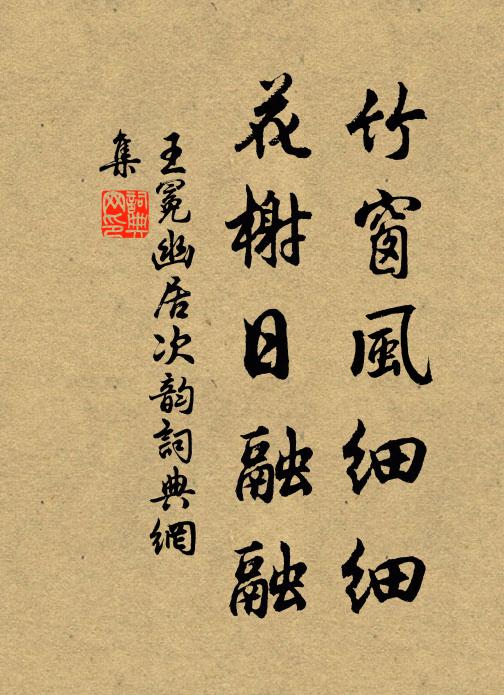 竹窗風細細
花榭日融融
王冕幽居次韵詞典網
集
詞典網印